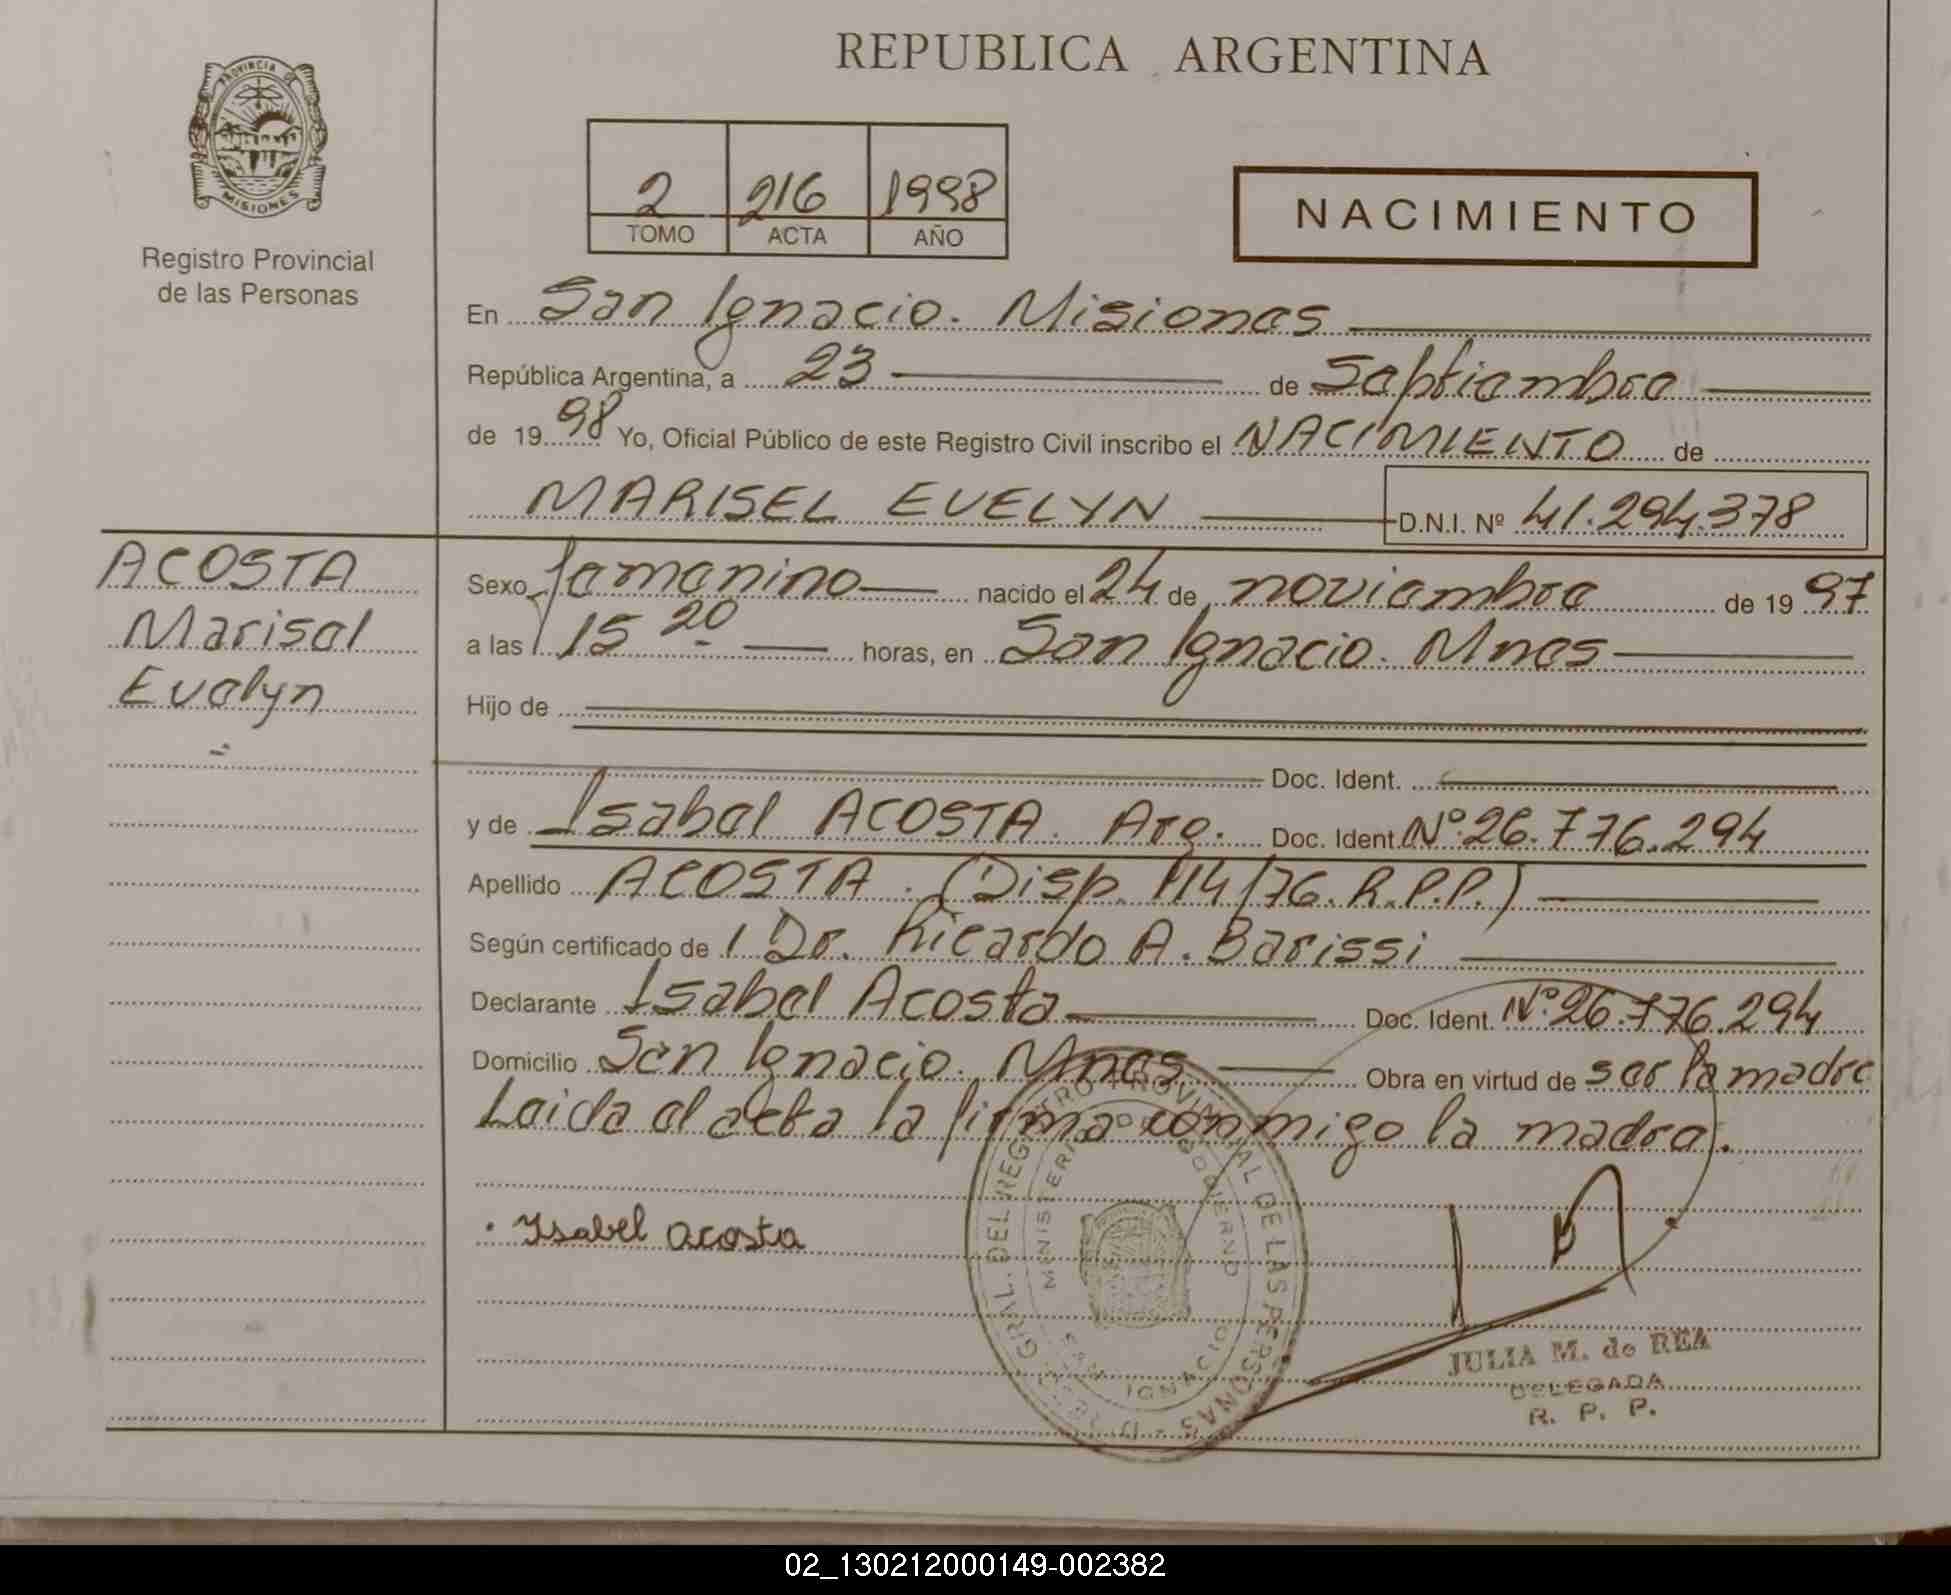 REPUBLICA ARGENTINA
PROVINCIA DE
MISIONES
Registro Provincial
de las Personas
2 216 1998
TOMO ACTA AÑO
NACIMIENTO
En San Ignacio. Misiones
República Argentina, a 23 de Septiembre
de 1998 Yo, Oficial Público de este Registro Civil inscribo el NACIMIENTO de
MARISEL EVELYN D.N.I. Nº 41.294.378
ACOSTA
Marisel
Evelyn
Sexo femenino nacido el 24 de noviembre de 1997
a las 15 20 horas, en San Ignacio. Mnes
Hijo de
Doc. Ident.
y de Isabel ACOSTA. Arg. Doc. Ident. Nº 26.776.294
Apellido ACOSTA. (Disp. 114/76. R.P.P.)
Según certificado de Dr. Ricardo A. Barissi
Declarante Isabel Acosta Doc. Ident. Nº 26.776.294
Domicilio San Ignacio. Mnes Obra en virtud de ser la madre
Leida el acta la firma conmigo la madre.
Isabel acosta
DIRECC. GRAL. DEL REGISTRO PROVINCIAL DE LAS PERSONAS
MINISTERIO DE GOBIERNO
SAN IGNACIO
JULIA M. de REA
DELEGADA
R. P. P.
02_130212000149-002382